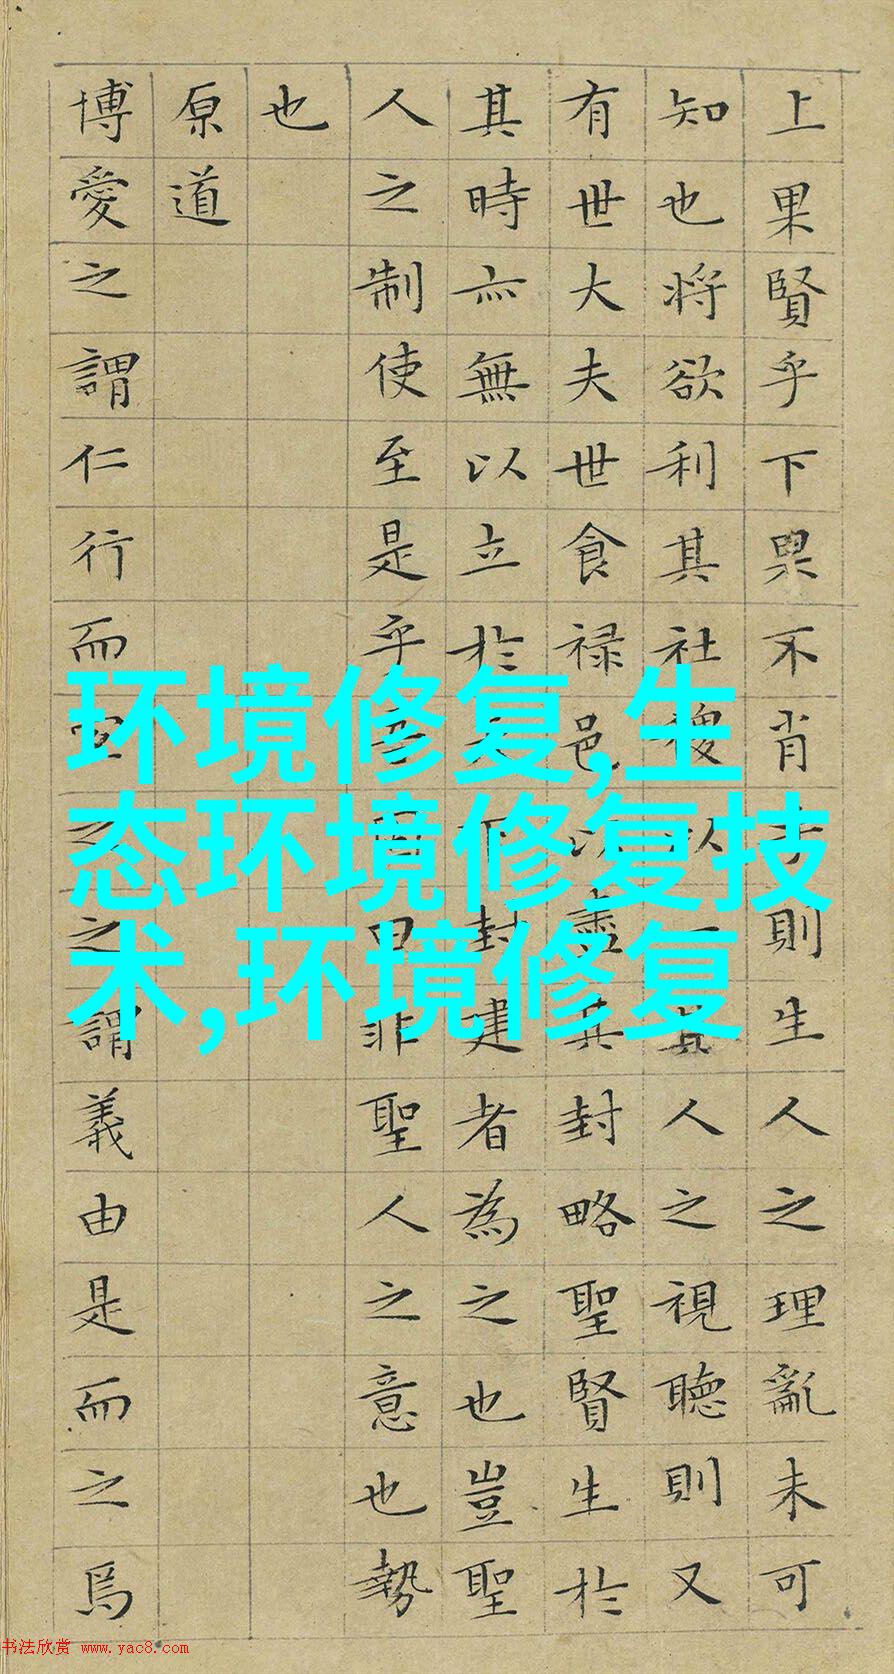 上果賢乎下果不肖乎則生人之理亂未可
知也將欲利其社稷以一其人之視聽則又
有世大夫世食祿邑以盡其封略聖賢生於
其時亦無以立於天下封建者為之也豈聖
人之制使至是乎吾固曰非聖人之意也勢
也
原道
博愛之謂仁行而宜之之謂義由是而之焉
环境修复,生
态环境修复技
术,环境修复
书法欣赏 www.yac8.com